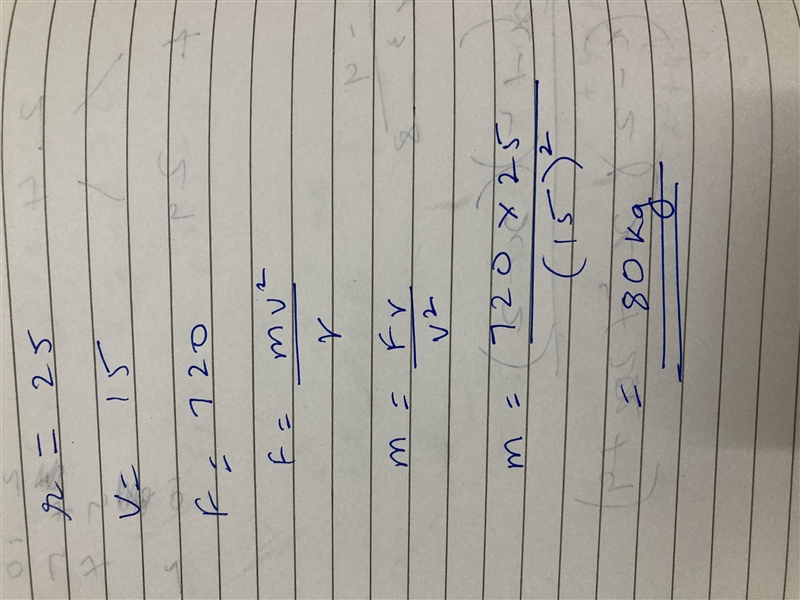 r = 25
v = 15
F = 720
F = mv²/r
m = Fr/v²
m = 720 × 25/(15)²
= 80 kg